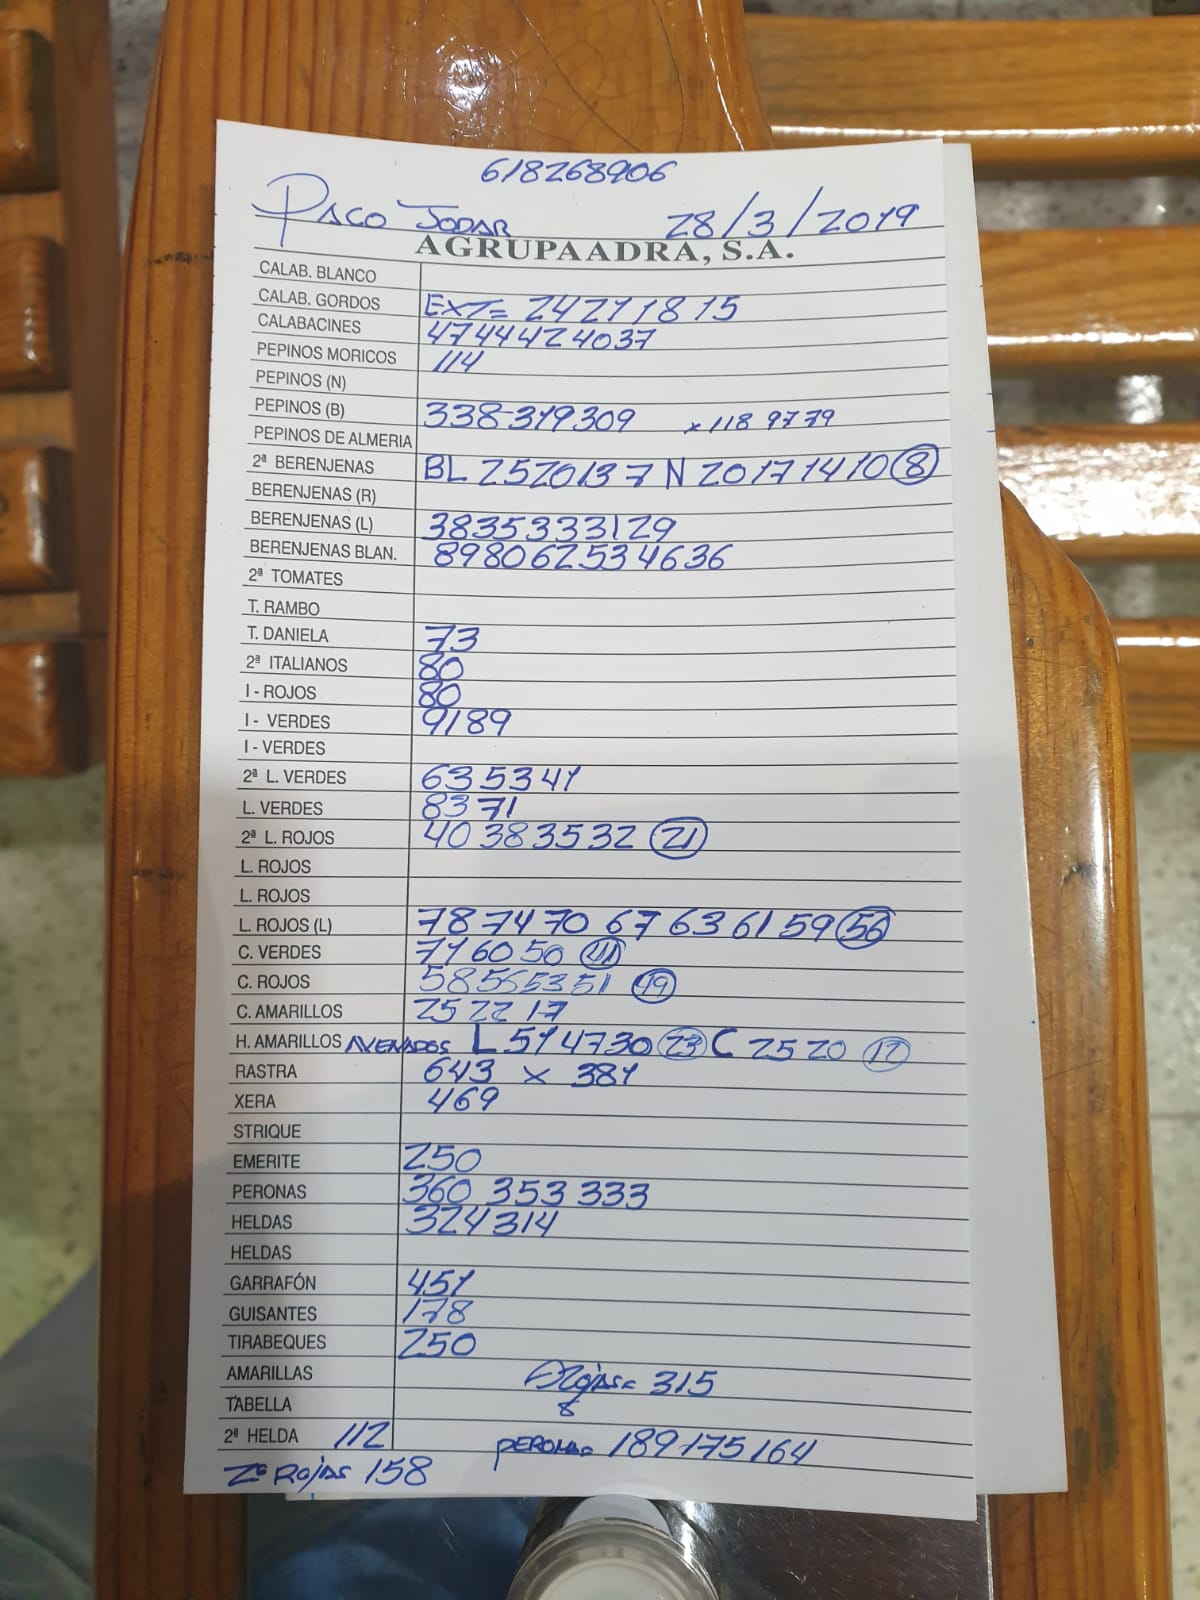 618268906
PACO JODAR 28/3/2019
AGRUPAADRA, S.A.
CALAB. BLANCO
CALAB. GORDOS EXT= 24211815
CALABACINES 4744424037
PEPINOS MORICOS 114
PEPINOS (N)
PEPINOS (B) 338-319309 x 118 97 79
PEPINOS DE ALMERIA
2ª BERENJENAS BL 2520137 N 20171410 8
BERENJENAS (R)
BERENJENAS (L) 3835333129
BERENJENAS BLAN. 898062534636
2ª TOMATES
T. RAMBO
T. DANIELA 73
2ª ITALIANOS 80
I - ROJOS 80
I - VERDES 9189
I - VERDES
2ª L. VERDES 635341
L. VERDES 8371
2ª L. ROJOS 40383532 21
L. ROJOS
L. ROJOS
L. ROJOS (L) 787470 67 63 61 59 56
C. VERDES 716050 41
C. ROJOS 58565351 49
C. AMARILLOS 25 22 17
H. AMARILLOS AVENADOS L 514730 23 C 2520 12
RASTRA 643 x 381
XERA 469
STRIQUE
EMERITE 250
PERONAS 360 353 333
HELDAS 324314
HELDAS
GARRAFÓN 451
GUISANTES 178
TIRABEQUES 250
AMARILLAS Rojas= 315
TABELLA 8
2ª HELDA 112 PERONA= 189175164
2ª Rojas 158